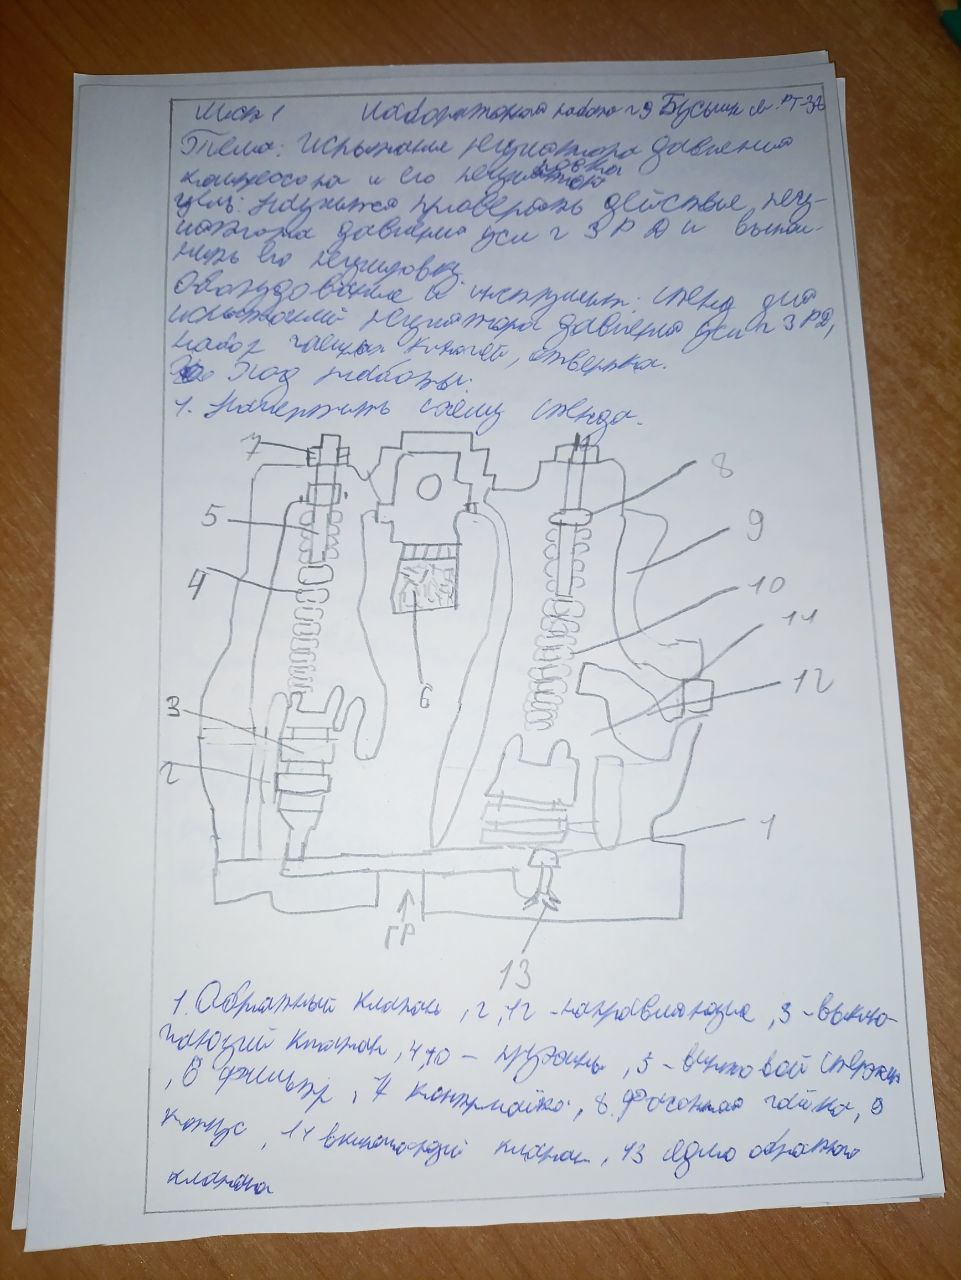 Лист 1 Лабораторная работа г9 Бусыгин РТ-38
Тема: Испытание регулятора давления
компрессора и его регулировка
Цель: научится проверять действие регу-
лятора давления усл г ЗРД и выпол-
нить его регулировку
Оборудование и инструмент: стенд для
испытаний регулятора давления усл г ЗРД,
набор гаечных ключей, отвертка.
Ход работы:
1. Начертить схему стенда.
7
8
5
9
4
10
11
6
12
3
2
1
ГР
13
1. Обратный клапан, 2,12 - направляющие, 3 - выклю-
чающий клапан, 4,10 - пружины, 5 - винтовой стержень
, 6 фильтр, 7 контргайка, 8. фасонная гайка, 9
корпус, 11 включающий клапан, 13 седло обратного
клапана